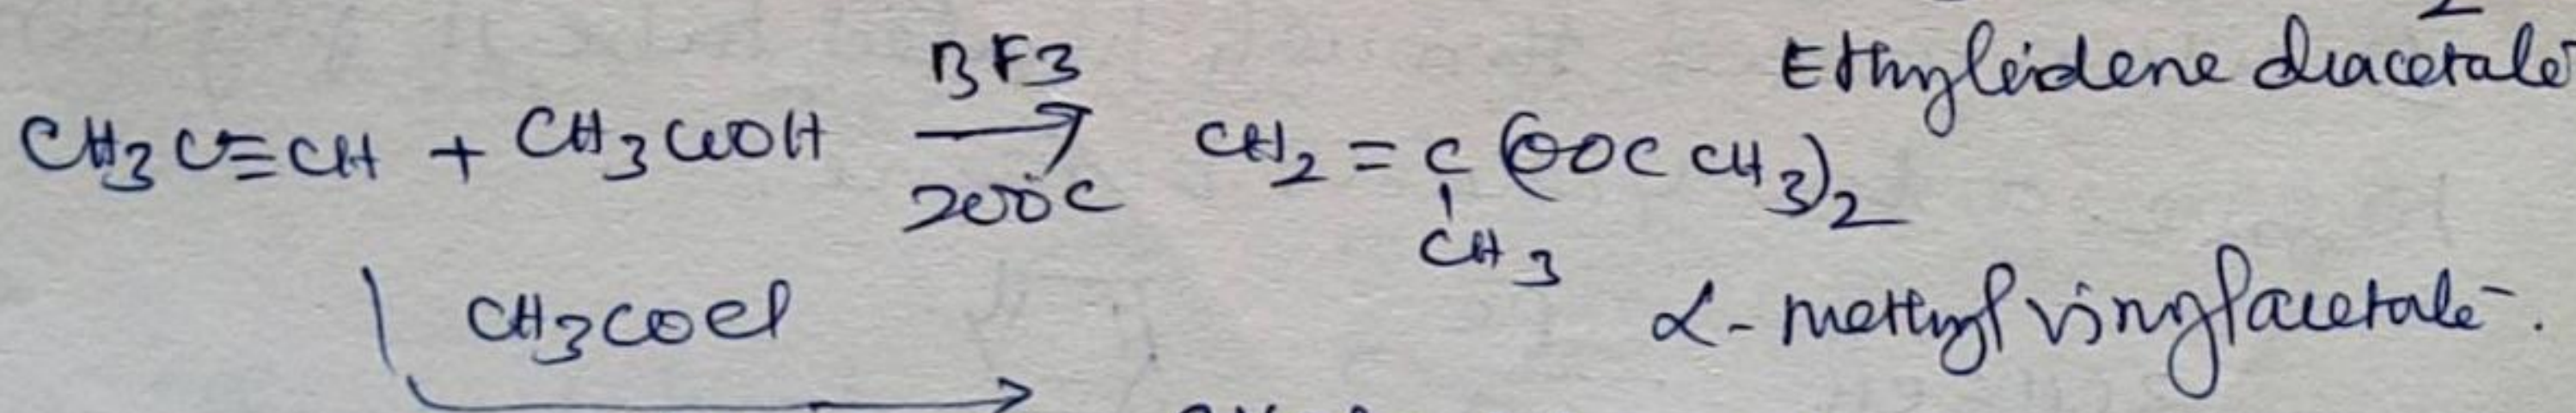 Ethyleidene diacetate
BF3
CH3C≡CH + CH3COOH → CH2 = C (OOCCH3)2
200°C
CH3
CH3COCl
α- methyl vinyl acetate.